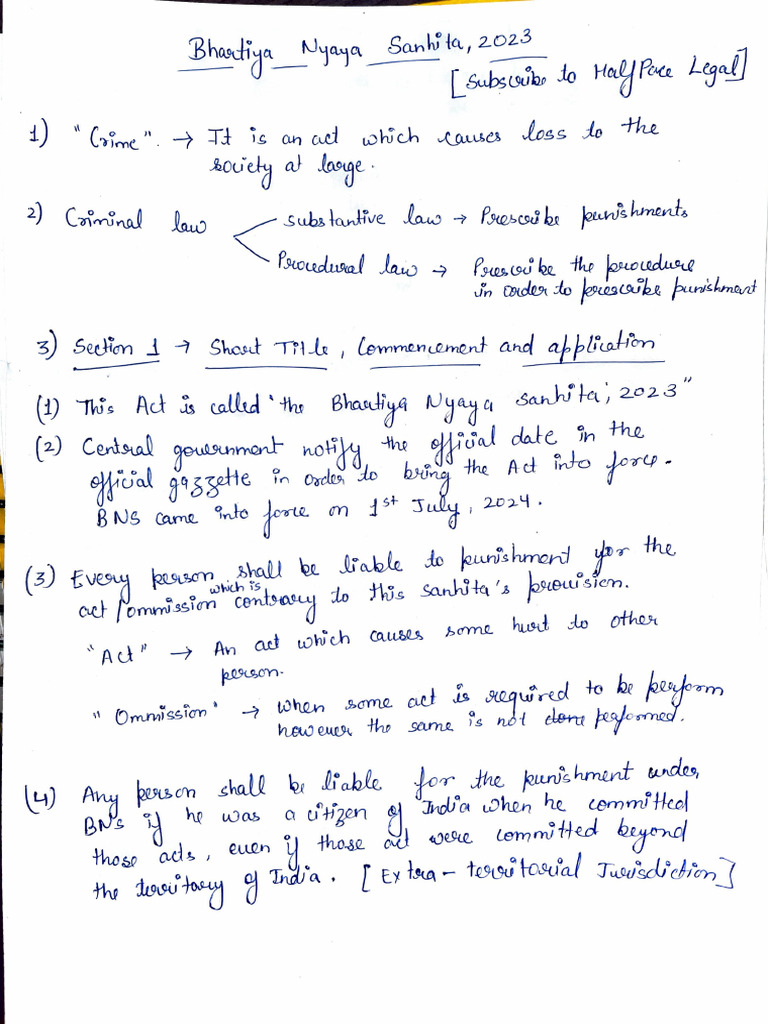 Bhartiya Nyaya Sanhita, 2023
[Subscribe to HalfPace Legal]
1) "Crime". → It is an act which causes loss to the
society at large.
2) Criminal law
substantive law → Prescribe punishments
Procedural law → Prescribe the procedure
in order to prescribe punishment
3) Section 1 → Short Title, Commencement and application
(1) This Act is called 'the Bhartiya Nyaya Sanhita, 2023"
(2) Central government notify the official date in the
official gazzette in order to bring the Act into force.
BNS came into force on 1st July, 2024.
(3) Every person shall be liable to punishment for the
act/ommission which is contrary to this Sanhita's provision.
"Act" → An act which causes some hurt to other
person.
"Ommission' → When some act is required to be perform
however the same is not done performed.
(4) Any person shall be liable for the punishment under
BNS if he was a citizen of India when he committed
those acts, even if those act were committed beyond
the territory of India. [Extra-territorial Jurisdiction]